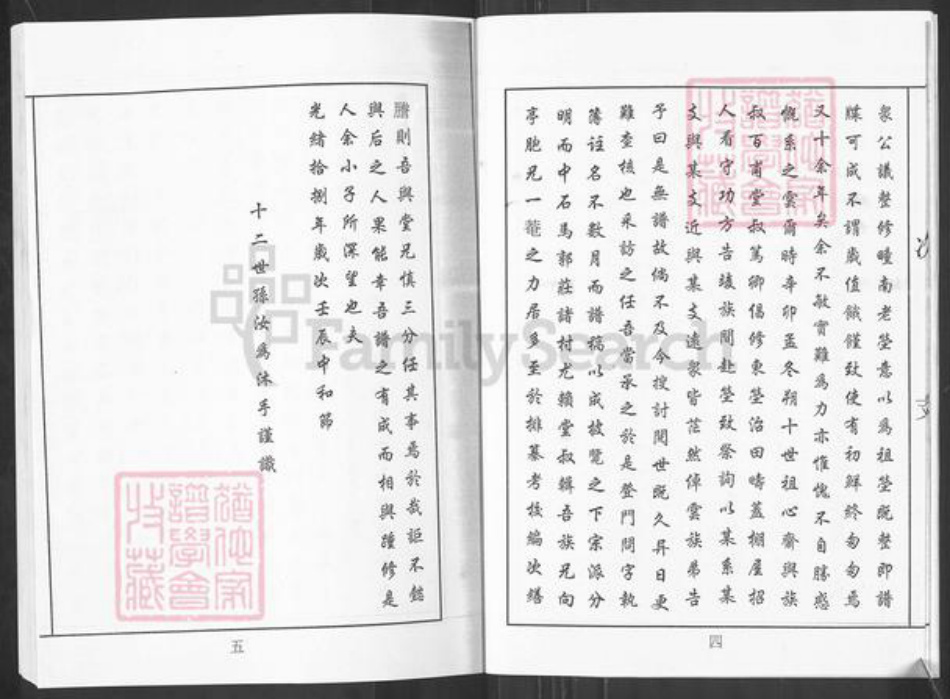 衆公議整修疃南老塋意以爲祖塋既整即譜
牒可成不謂歲值饑饉致使有初鮮終匆匆焉
又十余年矣余不敏實難爲力亦惟愧不自勝感
慨系之雲爾時辛卯孟冬朔十世祖心齋與族
叔百甫堂叔篤卿倡修東塋治田疇蓋棚屋招
人看守功方告竣族間赴塋致祭詢以某系某
支與某支近與某支遠衆皆茫然倬雲族弟告
予曰是無譜故倘不及今搜討閱世既久異日更
難查核也采訪之任吾當承之於是登門問字執
簿註名不數月而譜稿以成披覽之下宗派分
明而中石馬郭莊諸村尤賴堂叔輯吾族兄向
亭胞兄一菴之力居多至於排纂考校編次繕
謄則吾與堂兄慎三分任其事焉於茲詎不懿
與后之人果能幸吾譜之有成而相與踵修是
人余小子所深望也夫
光緒拾捌年歲次壬辰中和節
十二世孫汝爲沐手謹識
四
五
猶他家譜學會收藏
猶他家譜學會收藏
FamilySearch